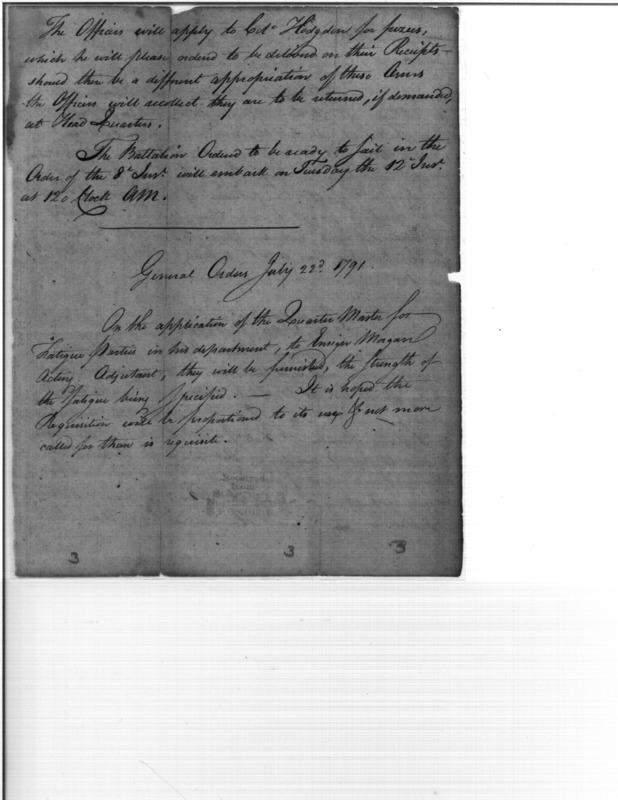 The Officers will apply to Colo Hodgdon for fuzees,
which he will please ordered to be delivered on their Receipts—
should then be a different appropriation of these Arms
the Officers will recollect they are to be returned, if demanded,
at Head Quarters.
The Battalion Ordered to be ready to sail in the
Order of the 8th Inst. will embark on Tuesday the 12th Inst.
at 12 o Clock AM.
General Orders July 22d. 1791.
On the application of the Quarter Master for
Fatigue Parties in his department, to Ensign Morgan
Acting Adjutant, they will be furnished, the strength of
the Fatigue being specified. — It is hoped the
Requisition will be proportioned to its use & not more
called for than is requisite.
3 3 3